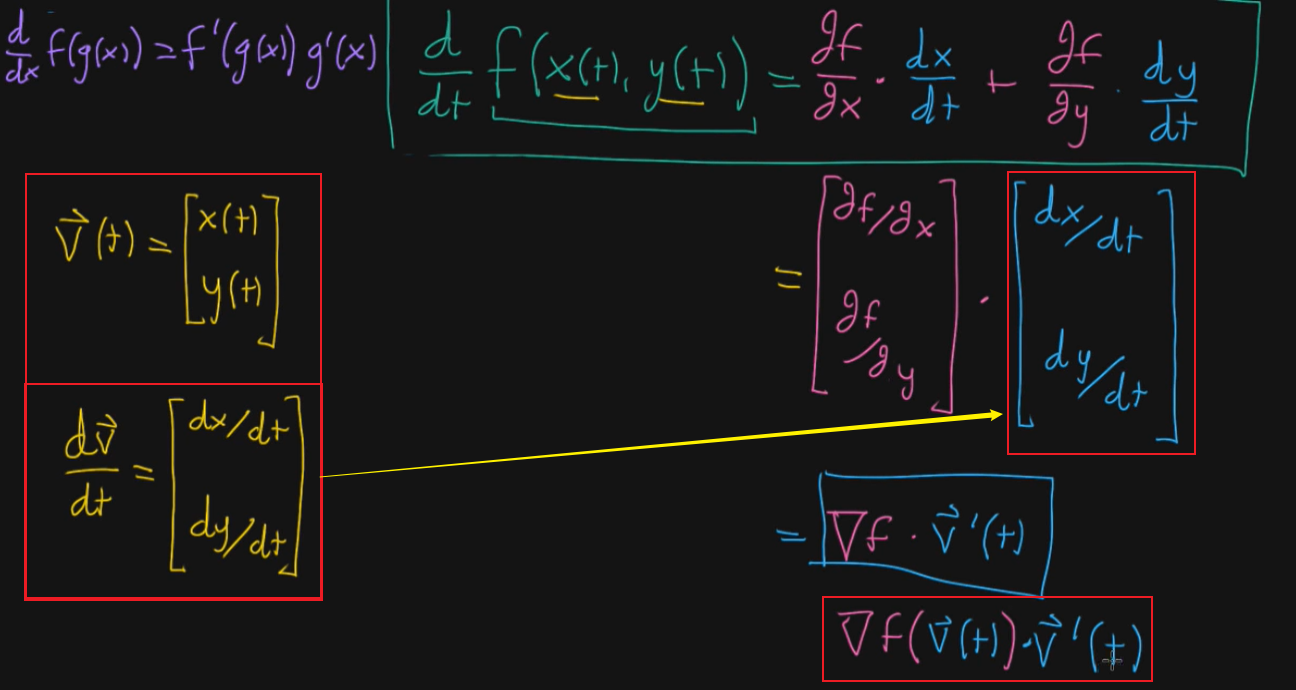 d/dx f(g(x)) = f'(g(x)) g'(x)
d/dt f(x(t), y(t)) = ∂f/∂x · dx/dt + ∂f/∂y · dy/dt
v⃗(t) = [x(t)
y(t)]
= [∂f/∂x
∂f/∂y] · [dx/dt
dy/dt]
dv⃗/dt = [dx/dt
dy/dt]
= ∇f · v⃗'(t)
∇f(v⃗(t)) · v⃗'(t)